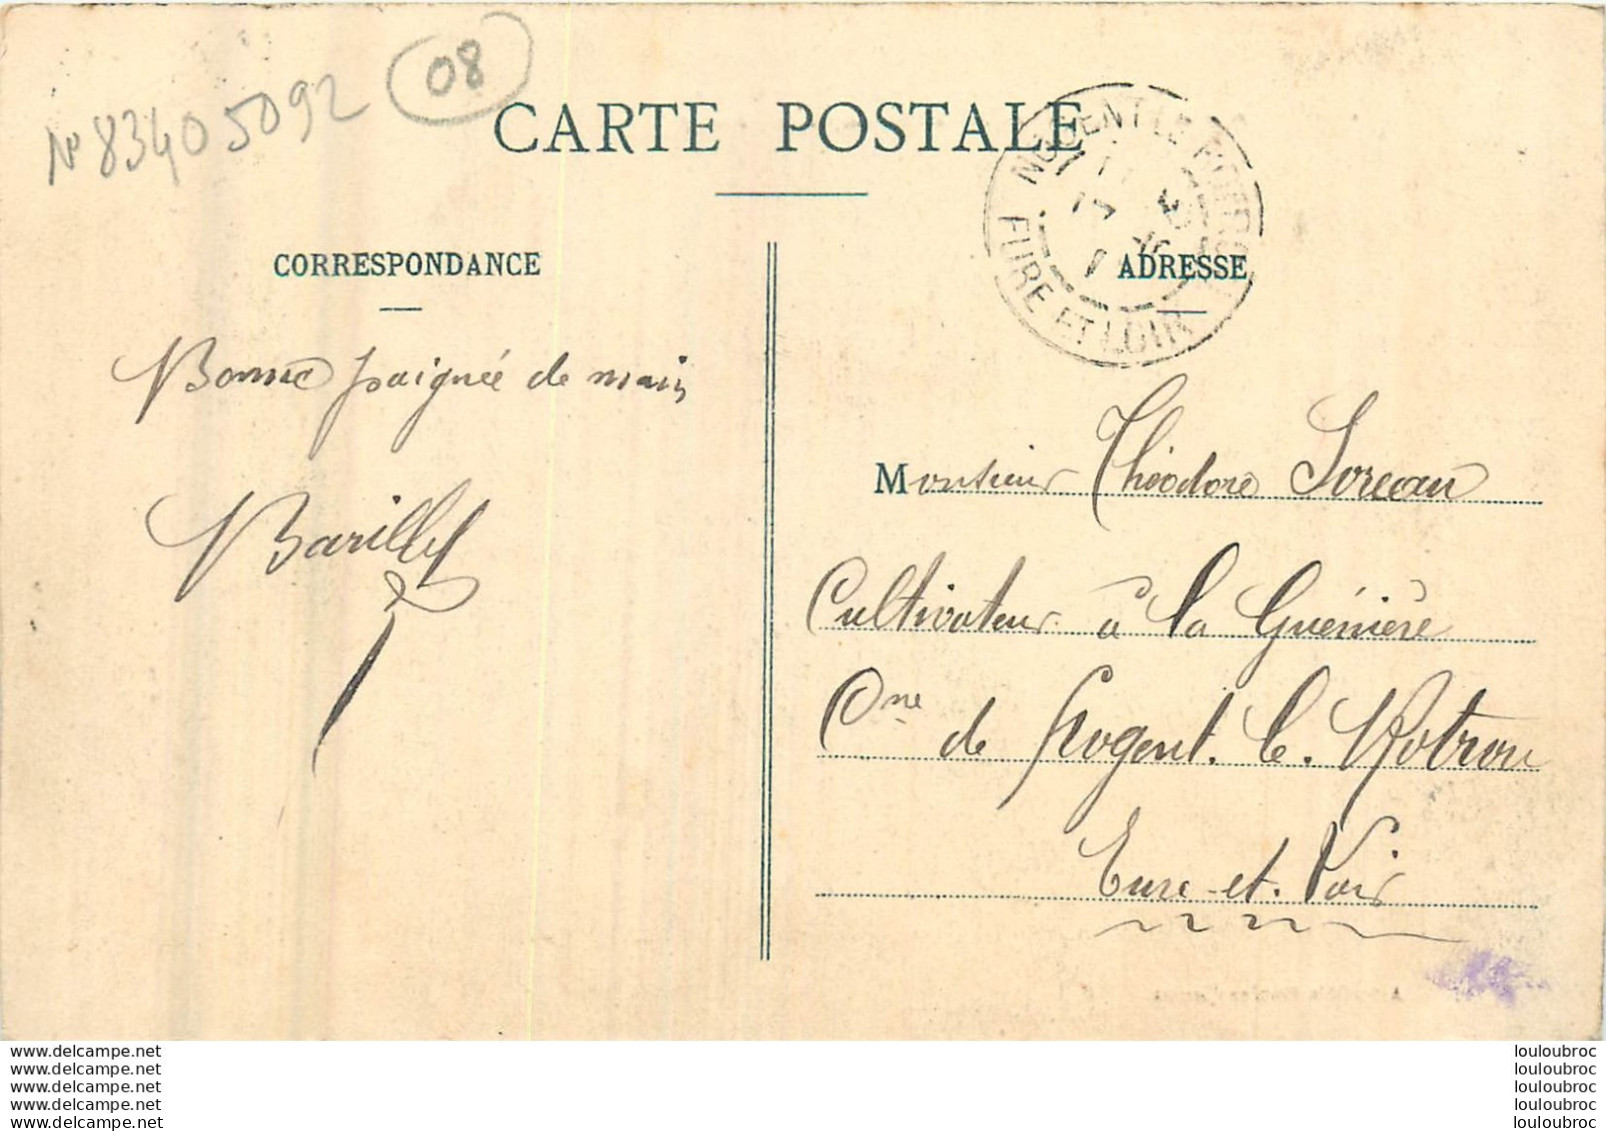 N° 83405092
08
CARTE POSTALE
NOGENT LE ROTROU
EURE ET LOIR
CORRESPONDANCE
ADRESSE
Bonne poignée de main
Barilly
Monsieur Théodore Soreau
Cultivateur à la Guénière
Cne de Nogent-le-Rotrou
Eure-et-Loir
www.delcampe.net
www.delcampe.net
www.delcampe.net
www.delcampe.net
www.delcampe.net
louloubroc
louloubroc
louloubroc
louloubroc
louloubroc